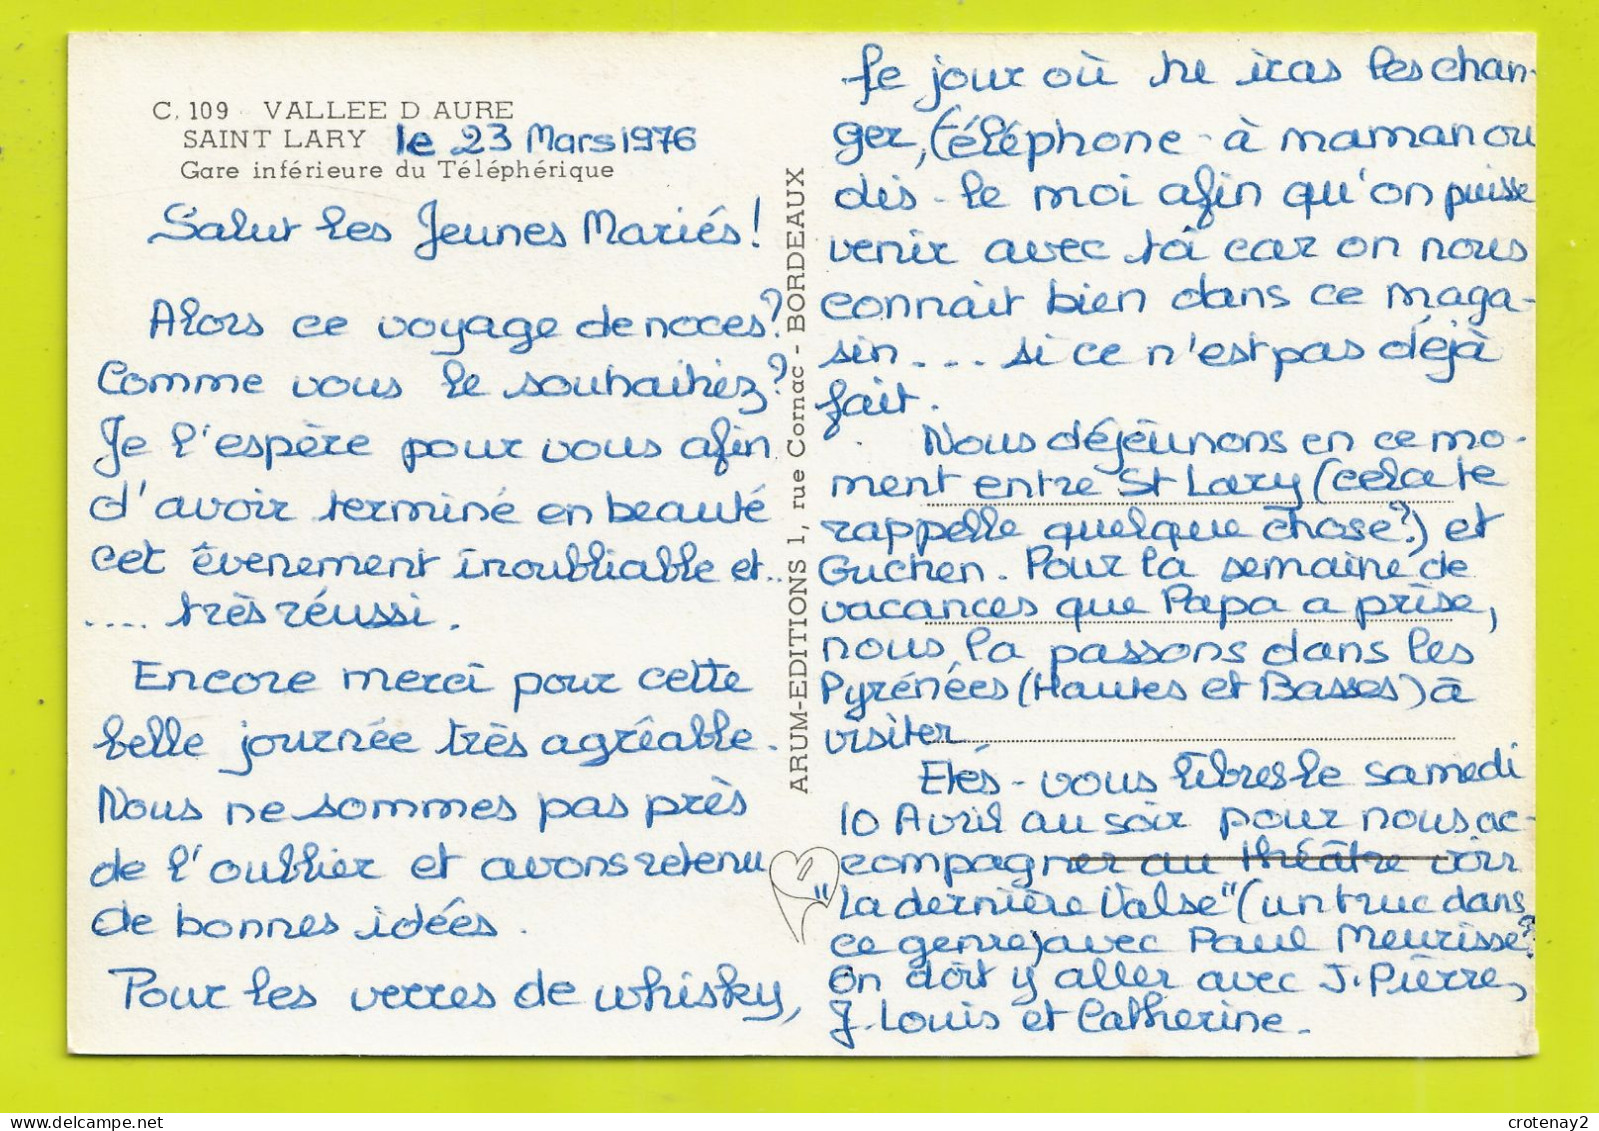 C. 109 VALLEE D AURE
SAINT LARY le 23 Mars 1976
Gare inférieure du Téléphérique
Salut les Jeunes Mariés !
Alors ce voyage de noces ?
Comme vous le souhaitiez ?
Je l'espère pour vous afin
d'avoir terminé en beauté
cet évenement inoubliable et..
.... très réussi.
Encore merci pour cette
belle journée très agréable.
Nous ne sommes pas près
de l'oublier et avons retenu
de bonnes idées.
Pour les verres de whisky,
ARUM-EDITIONS 1, rue Cornac - BORDEAUX
le jour où tu iras les chan-
ger, téléphone - à maman ou
dis - le moi afin qu'on puisse
venir avec toi car on nous
connait bien dans ce maga-
sin.... si ce n'est pas déjà
fait.
Nous déjeunons en ce mo-
ment entre St Lary (cela te
rappelle quelque chose ?) et
Guchen. Pour la semaine de
vacances que Papa a prise,
nous la passons dans les
Pyrénées (Hautes et Basses) à
visiter.
Etes-vous libres le samedi
10 Avril au soir pour nous ac-
compagner au théâtre voir
"La dernière Valse" (un truc dans
ce genre) avec Paul Meurisse ?
On doit y aller avec J. Pierre,
J. Louis et Catherine.
crotenay2